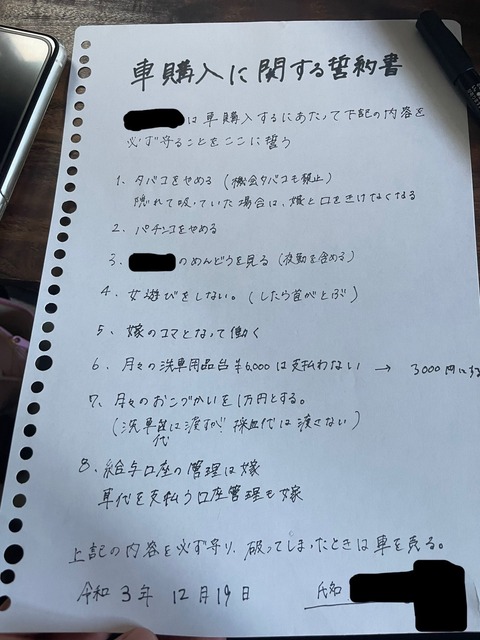 車購入に関する誓約書
は車購入するにあたって下記の内容を
必ず守ることをここに誓う
1、タバコをやめる（機会タバコも禁止）
隠れて吸っていた場合は、嫁と口をきけなくなる
2、パチンコをやめる
3、のめんどうを見る（夜勤を含める）
4、女遊びをしない。（したら首がとぶ）
5、嫁のコマとなって働く
6、月々の洗車用品台¥6,000は支払わない → 3000円にする
7、月々のおこづかいを1万円とする。
（洗車代は渡すが、代は渡さない）
8、給与口座の管理は嫁
車代を支払う口座管理も嫁
上記の内容を必ず守り、破ってしまったときは車を売る。
令和3年12月19日 氏名